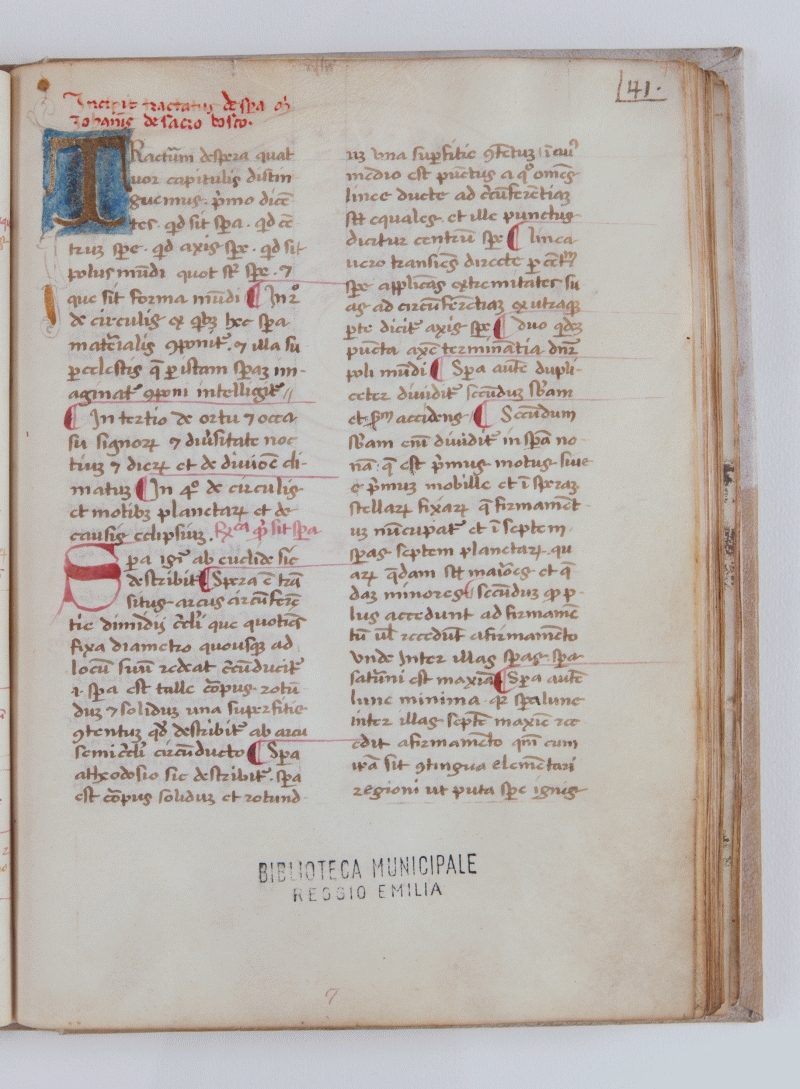 41.
Incipit tractatus de spa mgri
Iohanis de sacro bosco.
TRactum de spera quat
uor capitulis distin
guemus. pimo dicē
tes. qd sit spa. qd cē
trum spe. qd axis spe. qd sit
polus mūdi quot st spe. ⁊
que sit forma mūdi ¶ In 2º
de circulis ex qbz hec spa
materialis ꝯponit. ⁊ illa su
pcelestis q p istam spaz im-
aginat ꝯponi intelligit //
¶ In tertio de ortu ⁊ occa
su signoꝝ ⁊ diusitate noc
tiuz ⁊ dieꝝ et de diuiōe cli-
matuz ¶ In 4º de circulis
et motibz planetaꝝ et de
causis eclipsiuz. qd sit spa
Spa igr ab euclide sic
describit ¶ Spera ē trā
situs arcus circūferē
tie dimidij circli que quotiēs
fixa diametro quousqꝫ ad
locū suū redeat circūducit
.i. spa est talle corpus rotū
duz ⁊ solidus una superfitie
ꝯtentuz qd describit ab arcu
semicircli circūducto ¶ Spa
a theodosio sic describit. spa
est corpus soliduz et rotund
uz vna superfitie ꝯtetuz ī cui
medio est pūctus a qo omēs
linee ducte ad circūferētiaz
st equales. et ille punctus
dicitur centrū spe ¶ linea
uero transiens directe p cētꝝ
spe applicās extremitates su
as ad circūferētiaz ex utraqꝫ
pte dicit axis spe ¶ duo qdez
puncta axē terminātia dnr
poli mūdi ¶ Spa autē dupli-
citer diuidit secūduz sbam
et sm accidens ¶ Secūdum
sbam enī diuidit in spā no-
nā. q est pimus motus siue
e pimuz mobille et ī speraz
stellaꝝ fixaꝝ q firmamēt
uz nūcupat et ī septem
spas septem planetaꝝ. qu
aꝝ qdam st maiores et q
dam minores secūduz qꝫ p-
lus accedunt ad firmamē
tū ul recedūt a firmamēto
vnde Inter illas spas spa
saturni est maxia ¶ Spa autē
lune minima. qr spa lune
inter illas septē maxie rece
dit a firmamēto qm cum
ipa sit ꝯtingua elemētari
regioni ut puta spe ignis
BIBLIOTECA MUNICIPALE
REGGIO EMILIA
7